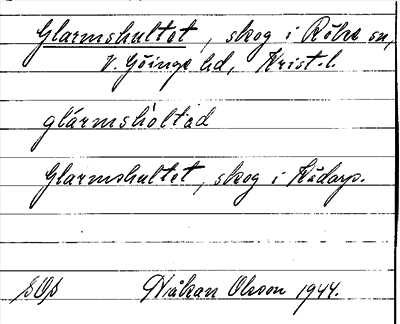 Glarmshultet, skog i Röke sn,
V. Göinge hd, Krist. l.
glármshòltad
Glarmshultet, skog i Kädarp.
SOS Håkan Olsson 1944.